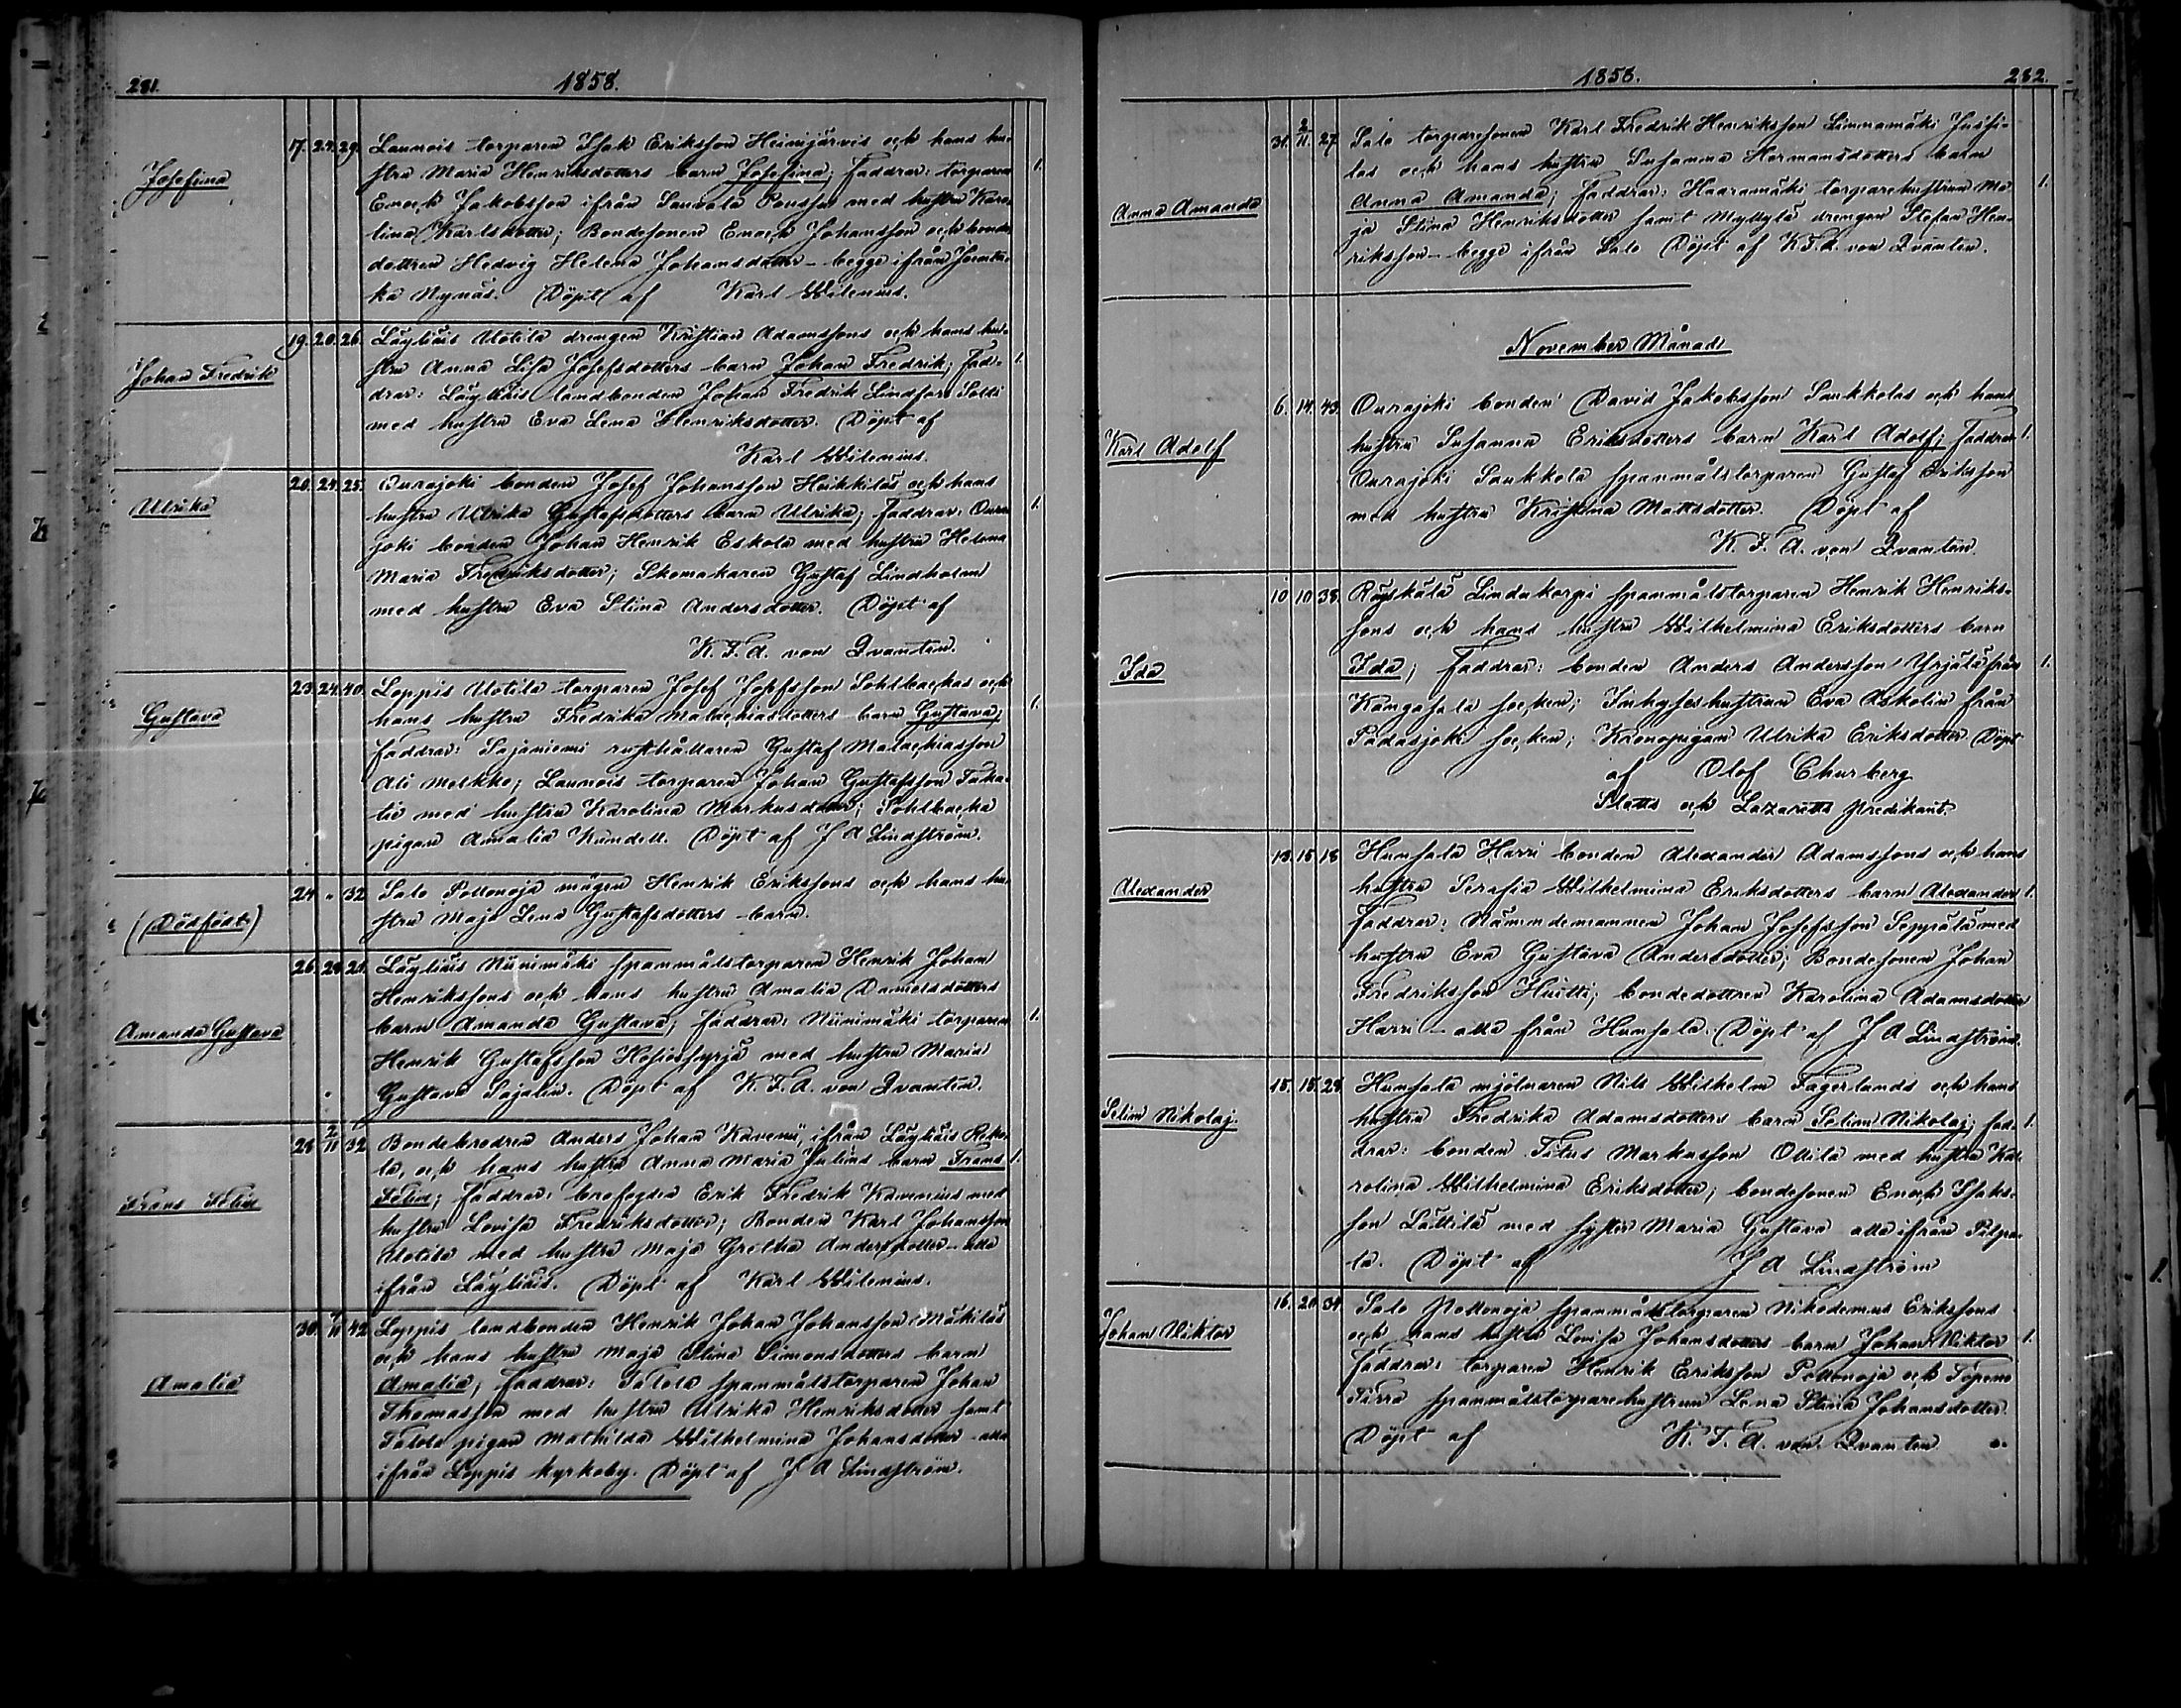 281.
1858.
Josefina
17. 24. 29. Launois torparen Isak Eriksson Heinijärvis och hans hu-
stru Maria Henriksdotters barn Josefina; Faddrar: torparen 1.
Enock Jakobsson ifrån Sauvala med hustru Karo-
lina Karlsdotter; Bondesonen Enock Johansson och bonde
dottren Hedvig Helena Johansdotter – begge ifrån
ka Nynäs. Döpt af Karl Wilenius.
Johan Fredrik
19. 20. 26. Läyliäis Uotila drengen Kristian Adamssons och hans hu-
stru Anna Lisa Josefsdotters barn Johan Fredrik; Fad- 1.
drar: Läyliäis landbonden Johan Fredrik Lindfors Soldi
med hustru Eva Lena Henriksdotter. Döpt af
Karl Wilenius.
Ulrika
20. 24. 25. Ourajoki bonden Josef Johansson Heikkiläs och hans
hustru Ulrika Gustafsdotters barn Ulrika; Faddrar: Oura 1.
joki bonden Johan Henrik Eskola med hustru Helena
Maria Fredriksdotter; Skomakaren Gustaf Lindholm
med hustru Eva Stina Andersdotter. Döpt af
K. F. A. von Qvanten.
Gustava
23. 24. 40. Loppis Uotila torparen Josef Josefsson Sohlbackas och
hans hustru Fredrika Malachiasdotters barn Gustava; 1.
Faddrar: Sajaniemi rusthållaren Gustaf Malachiasson
Ali Melkko; Launois torparen Johan Gustafsson Taka-
lio med hustru Karolina Markusdotter; Sohlbacka
pigan Amalia Kumdell. Döpt af J A Lindström.
(Dödfödt)
24. " 32. Salo Pollonoja mågen Henrik Erikssons och hans hu-
stru Maja Lena Gustafsdotters barn.
Amanda Gustava
26. 28. 21. Läyliäis Niinimäki spanmålstorparen Henrik Johan
Henrikssons och hans hustru Amalia Danielsdotters
barn Amanda Gustava; faddrar: Niinimäki torparen 1.
Henrik Gustafsson med hustru Maria
Gustava Sajalin. Döpt af K. F. A. von Qvanten.
Frans Felix
28. 2/11 32. Bondebrodren Anders Johan Kavenii, ifrån Läyliäis Rekо-
la, och hans hustru Anna Maria Julins barn Frans 1.
Felix; faddrar: brofogden Erik Fredrik Kavenius med
hustru Lovisa Fredriksdotter; Bonden Karl Johansson
Uotila med hustru Maja Gretha Andersdotter – alla
ifrån Läyliäis. Döpt af Karl Wilenius.
Amalia
30. 7/11 42. Loppis landbonden Henrik Johan Johansson Mäkiläs
och hans hustru Maja Stina Simonsdotters barn
Amalia; Faddrar: Talola spanmålstorparen Johan
Thomasson med hustru Ulrika Henriksdotter samt
Talola pigan Mathilda Wilhelmina Johansdotter – alla
ifrån Loppis kyrkoby. Döpt af J A Lindström.
1858.
282.
Anna Amanda
31. 2/11. 27. Salo torparesonen Karl Fredrik Henriksson Linnamäki Jussi-
las och hans hustru Susanna Hermansdotters barn
Anna Amanda; Faddrar: Haaramäki torparehustrun Ma- 1.
ja Stina Henriksdotter samt Myllylä drengen Stefan Hen-
riksson – begge ifrån Salo Döpt af K. F. A. von Qvanten.
November Månad
Karl Adolf
6. 14. 43. Ourajoki bonden David Jakobsson Saukkolas och hans
hustru Susanna Eriksdotters barn Karl Adolf; Faddrar 1.
Ourajoki Saukkola spanmålstorparen Gustaf Eriksson
med hustru Kristina Mattsdotter. Döpt af
K. F. A. von Qvanten.
Ida
10 10 38. Räyskälä Lindukorpi spanmålstorparen Henrik Henriks-
sons och hans hustru Wilhelmina Eriksdotters barn
Ida; Faddrar: bonden Anders Andersson Yrjälä från 1.
Kangasala socken; Inhyseshustrun Eva Askolin från
Padasjoki socken; Kronopigan Ulrika Eriksdotter Döpt
af Olof Churberg
Slotts och Lazaretts predikant.
Alexander
13. 15 18 Hunsala Harri bonden Alexander Adamssons och hans
hustru Serafia Wilhelmina Eriksdotters barn Alexander 1.
faddrar: Nämndemannen Johan Josefsson Seppälä med
hustru Eva Gustava Andersdotter; Bondesonen Johan
Fredriksson Huitti; bondedottren Karolina Adamsdotter
Harri – alla från Hunsala. Döpt af J A Lindström.
Selim Nikolaj.
15. 15. 28. Hunsala mjölnaren Nils Wilhelm Fagerlunds och hans
hustru Fredrika Adamsdotters barn Selim Nikolaj; fad- 1.
drar: bonden Titus Markusson Ollila med hustru Ka-
rolina Wilhelmina Eriksdotter; bondesonen Enock Isaks-
son Lättilä med syster Maria Gustava alla ifrån Pilpa-
la. Döpt af J A Lindström
Johan Viktor
16. 20. 34. Salo Pollonoja spanmålstorparen Nikodemus Erikssons
och hans hustru Lovisa Johansdotters barn Johan Viktor 1.
Faddrar: torparen Henrik Eriksson Pollonoja och Topeno
Turra spanmålstorparehustrun Lena Stina Johansdotter.
Döpt af K. F. A. von Qvanten